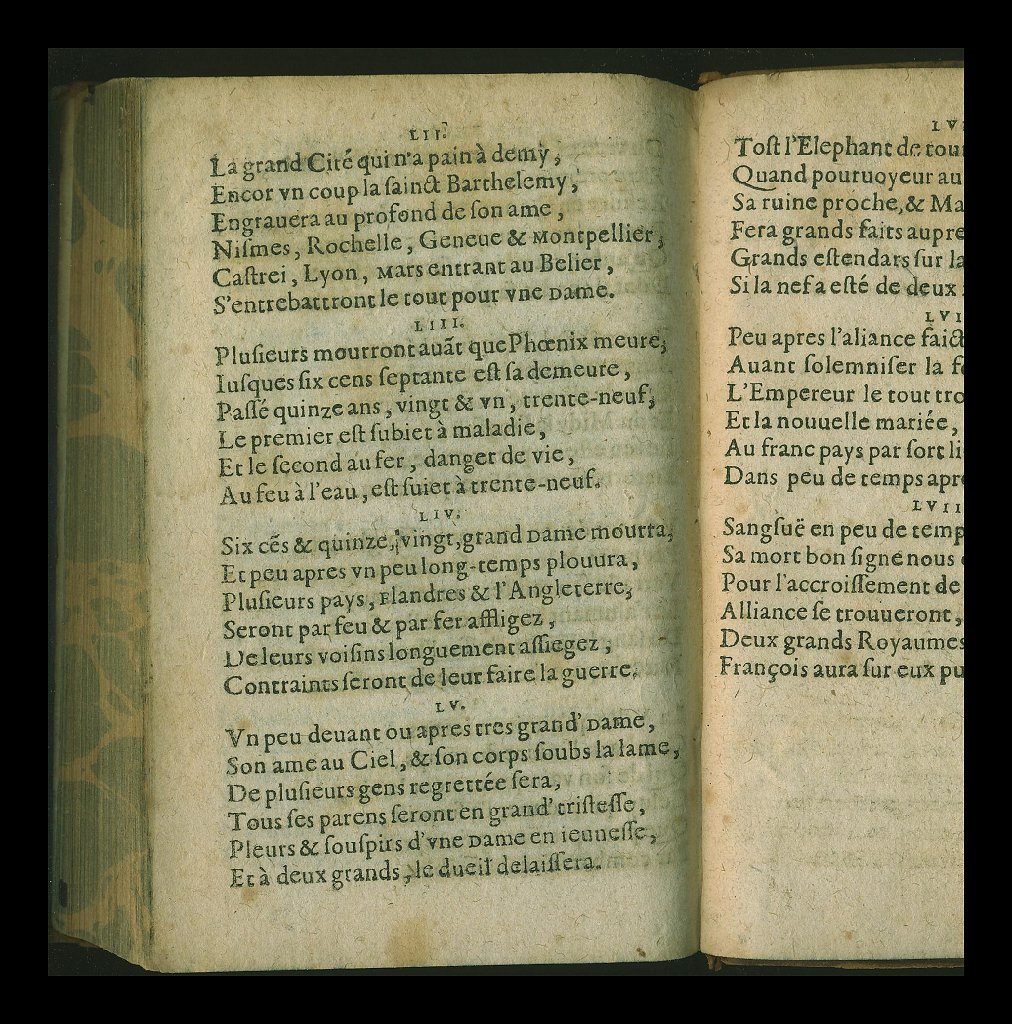 LII.
La grand Cité qui n'a pain à demy,
Encor vn coup la ſainct Barthelemy,
Engrauera au profond de ſon ame,
Niſmes, Rochelle, Geneue & Montpellier,
Caſtrei, Lyon, Mars entrant au Belier,
S'entrebattront le tout pour vne Dame.
LIII.
Pluſieurs mourront auãt que Phœnix meure,
Iuſques ſix cens ſeptante eſt ſa demeure,
Paſſé quinze ans, vingt & vn, trente-neuf,
Le premier eſt ſubiet à maladie,
Et le ſecond au fer, danger de vie,
Au feu à l'eau, eſt ſuiet à trente-neuf.
LIV.
Six cẽs & quinze, vingt, grand Dame mourra,
Et peu apres vn peu long-temps plouura,
Pluſieurs pays, Flandres & l'Angleterre,
Seront par feu & par fer affligez,
De leurs voiſins longuement aſſiegez,
Contraints ſeront de leur faire la guerre.
LV.
Vn peu deuant ou apres tres grand' Dame,
Son ame au Ciel, & ſon corps ſoubs la lame,
De pluſieurs gens regrettée ſera,
Tous ſes parens ſeront en grand' triſteſſe,
Pleurs & ſouſpirs d'vne Dame en ieuneſſe,
Et à deux grands, le dueil delaiſſera.
LV
Toſt l'Elephant de tou
Quand pouruoyeur au
Sa ruine proche, & Ma
Fera grands faits aupre
Grands eſtendars ſur la
Si la nef a eſté de deux
LVI
Peu apres l'aliance faict
Auant ſolemniſer la fe
L'Empereur le tout tro
Et la nouuelle mariée,
Au franc pays par ſort li
Dans peu de temps apr
LVII
Sangſuë en peu de temp
Sa mort bon ſigne nous
Pour l'accroiſſement de
Alliance ſe trouueront,
Deux grands Royaumes
François aura ſur eux pu